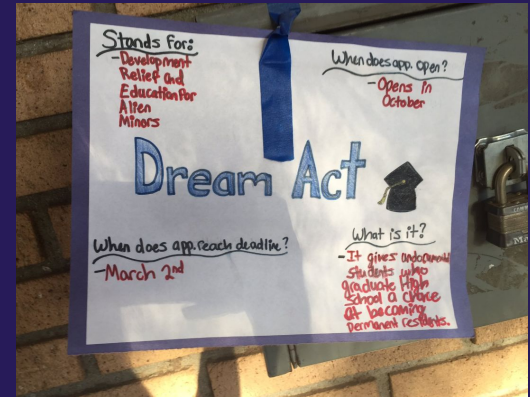 Stands For:
-Development
Relief and
Education For
Alien
Minors
When does app. open?
-Opens in
October
Dream Act
When does app. reach deadline?
-March 2nd
What is it?
-It gives undocumented
students who
graduate High
school a chance
at becoming
permanent residents.
Master